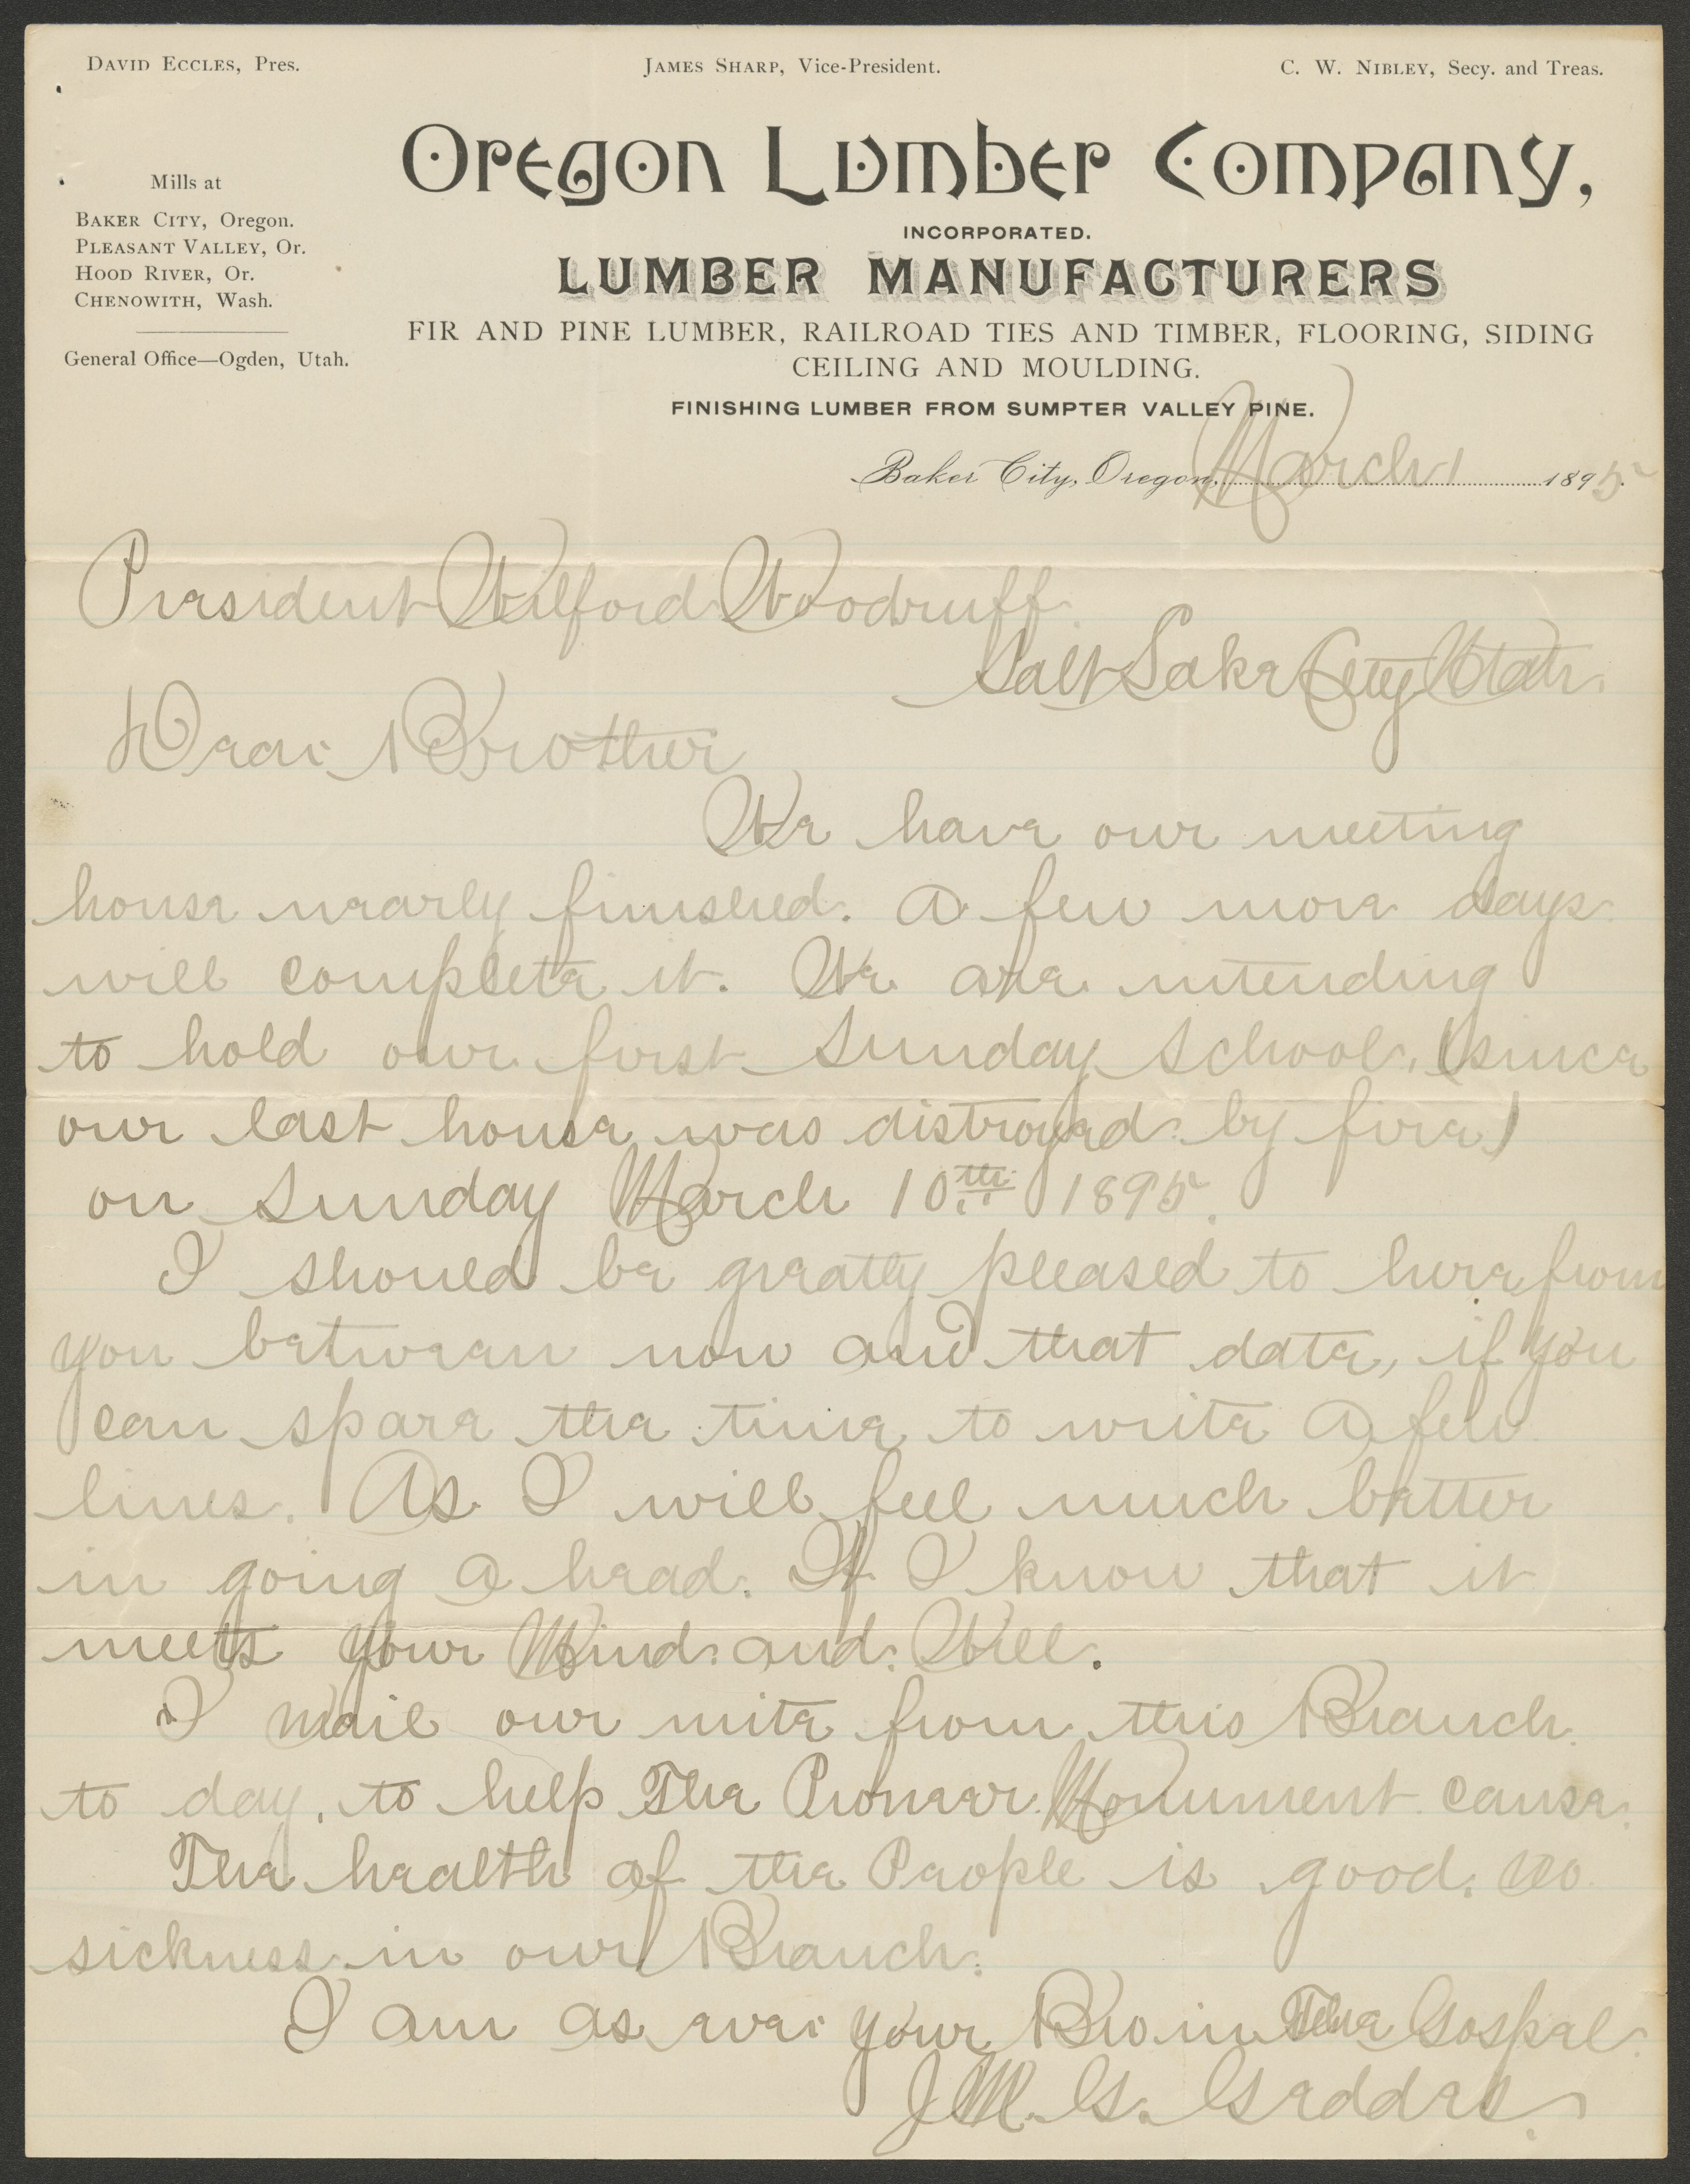 DAVID ECCLES, Pres.
JAMES SHARP, Vice-President.
C. W. NIBLEY, Secy. and Treas.
Oregon Lumber Company,
INCORPORATED.
LUMBER MANUFACTURERS
FIR AND PINE LUMBER, RAILROAD TIES AND TIMBER, FLOORING, SIDING
CEILING AND MOULDING.
FINISHING LUMBER FROM SUMPTER VALLEY PINE.
Mills at
BAKER CITY, Oregon.
PLEASANT VALLEY, Or.
HOOD RIVER, Or.
CHENOWITH, Wash.
General Office—Ogden, Utah.
Baker City, Oregon, March 1 1895.
President Wilford Woodruff.
Salt Lake City Utah.
Dear Brother
We have our meeting
house nearly finished. A few more days
will complete it. We are intending
to hold our first Sunday School, (since
our last house was distroyed by fire)
on Sunday March 10th 1895.
I should be greatly pleased to here from
you between now and that date, if you
can spare the time to write a few
lines. As I will feel much better
in going a head. If I know that it
meets your Mind and Will.
I mail our mite from this Branch
to day, to help The Pioneer Monument cause.
The health of the People is good. No
sickness in our Branch.
I am as ever your Bro. in The Gospel.
J. M. G. Geddes.